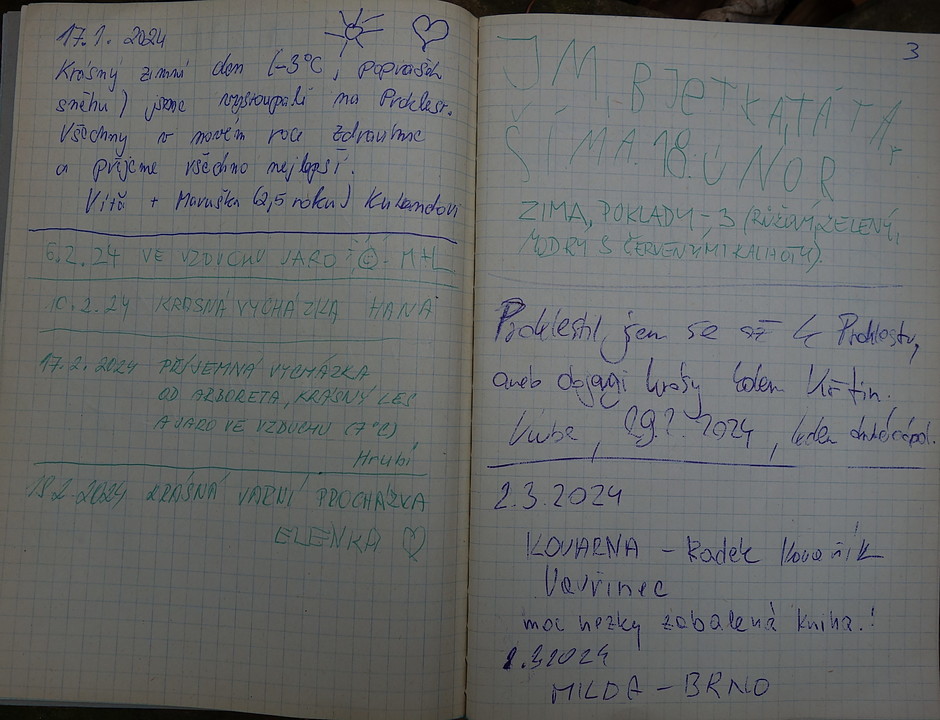 17.1. 2024
Krásný zimní den (-3°C, poprašek
sněhu) jsme vystoupali na Proklest.
Všechny v novém roce zdravíme
a přejeme všechno nejlepší.
Víťa + Maruška (2,5 roku) Kubandovi
6.2.24 VE VZDUCHU JARO M+L
10.2.24 KRASNÁ VYCHÁZKA HANA
17.2.2024 PŘÍJEMNÁ VYCHÁZKA
OD ARBORETA, KRÁSNÝ LES
A JARO VE VZDUCHU (7°C)
Hrubí
2.2024 KRÁSNÁ PROCHÁZKA
ELENKA
3
TÁTA
ŠÍMA 18. ÚNOR
ZIMA, POKLADY - 3 (RŮŽOVÝ, ZELENÝ,
MODRÝ S ČERVENÝMI KALHOTY)
jsem se až
aneb objevuji krásy kolem Křtin.
2024
2.3.2024
KOVARNA - Radek Kovařík
Vavřinec
moc hezky zabalená kniha.!
2.3.2024
MILDA - BRNO